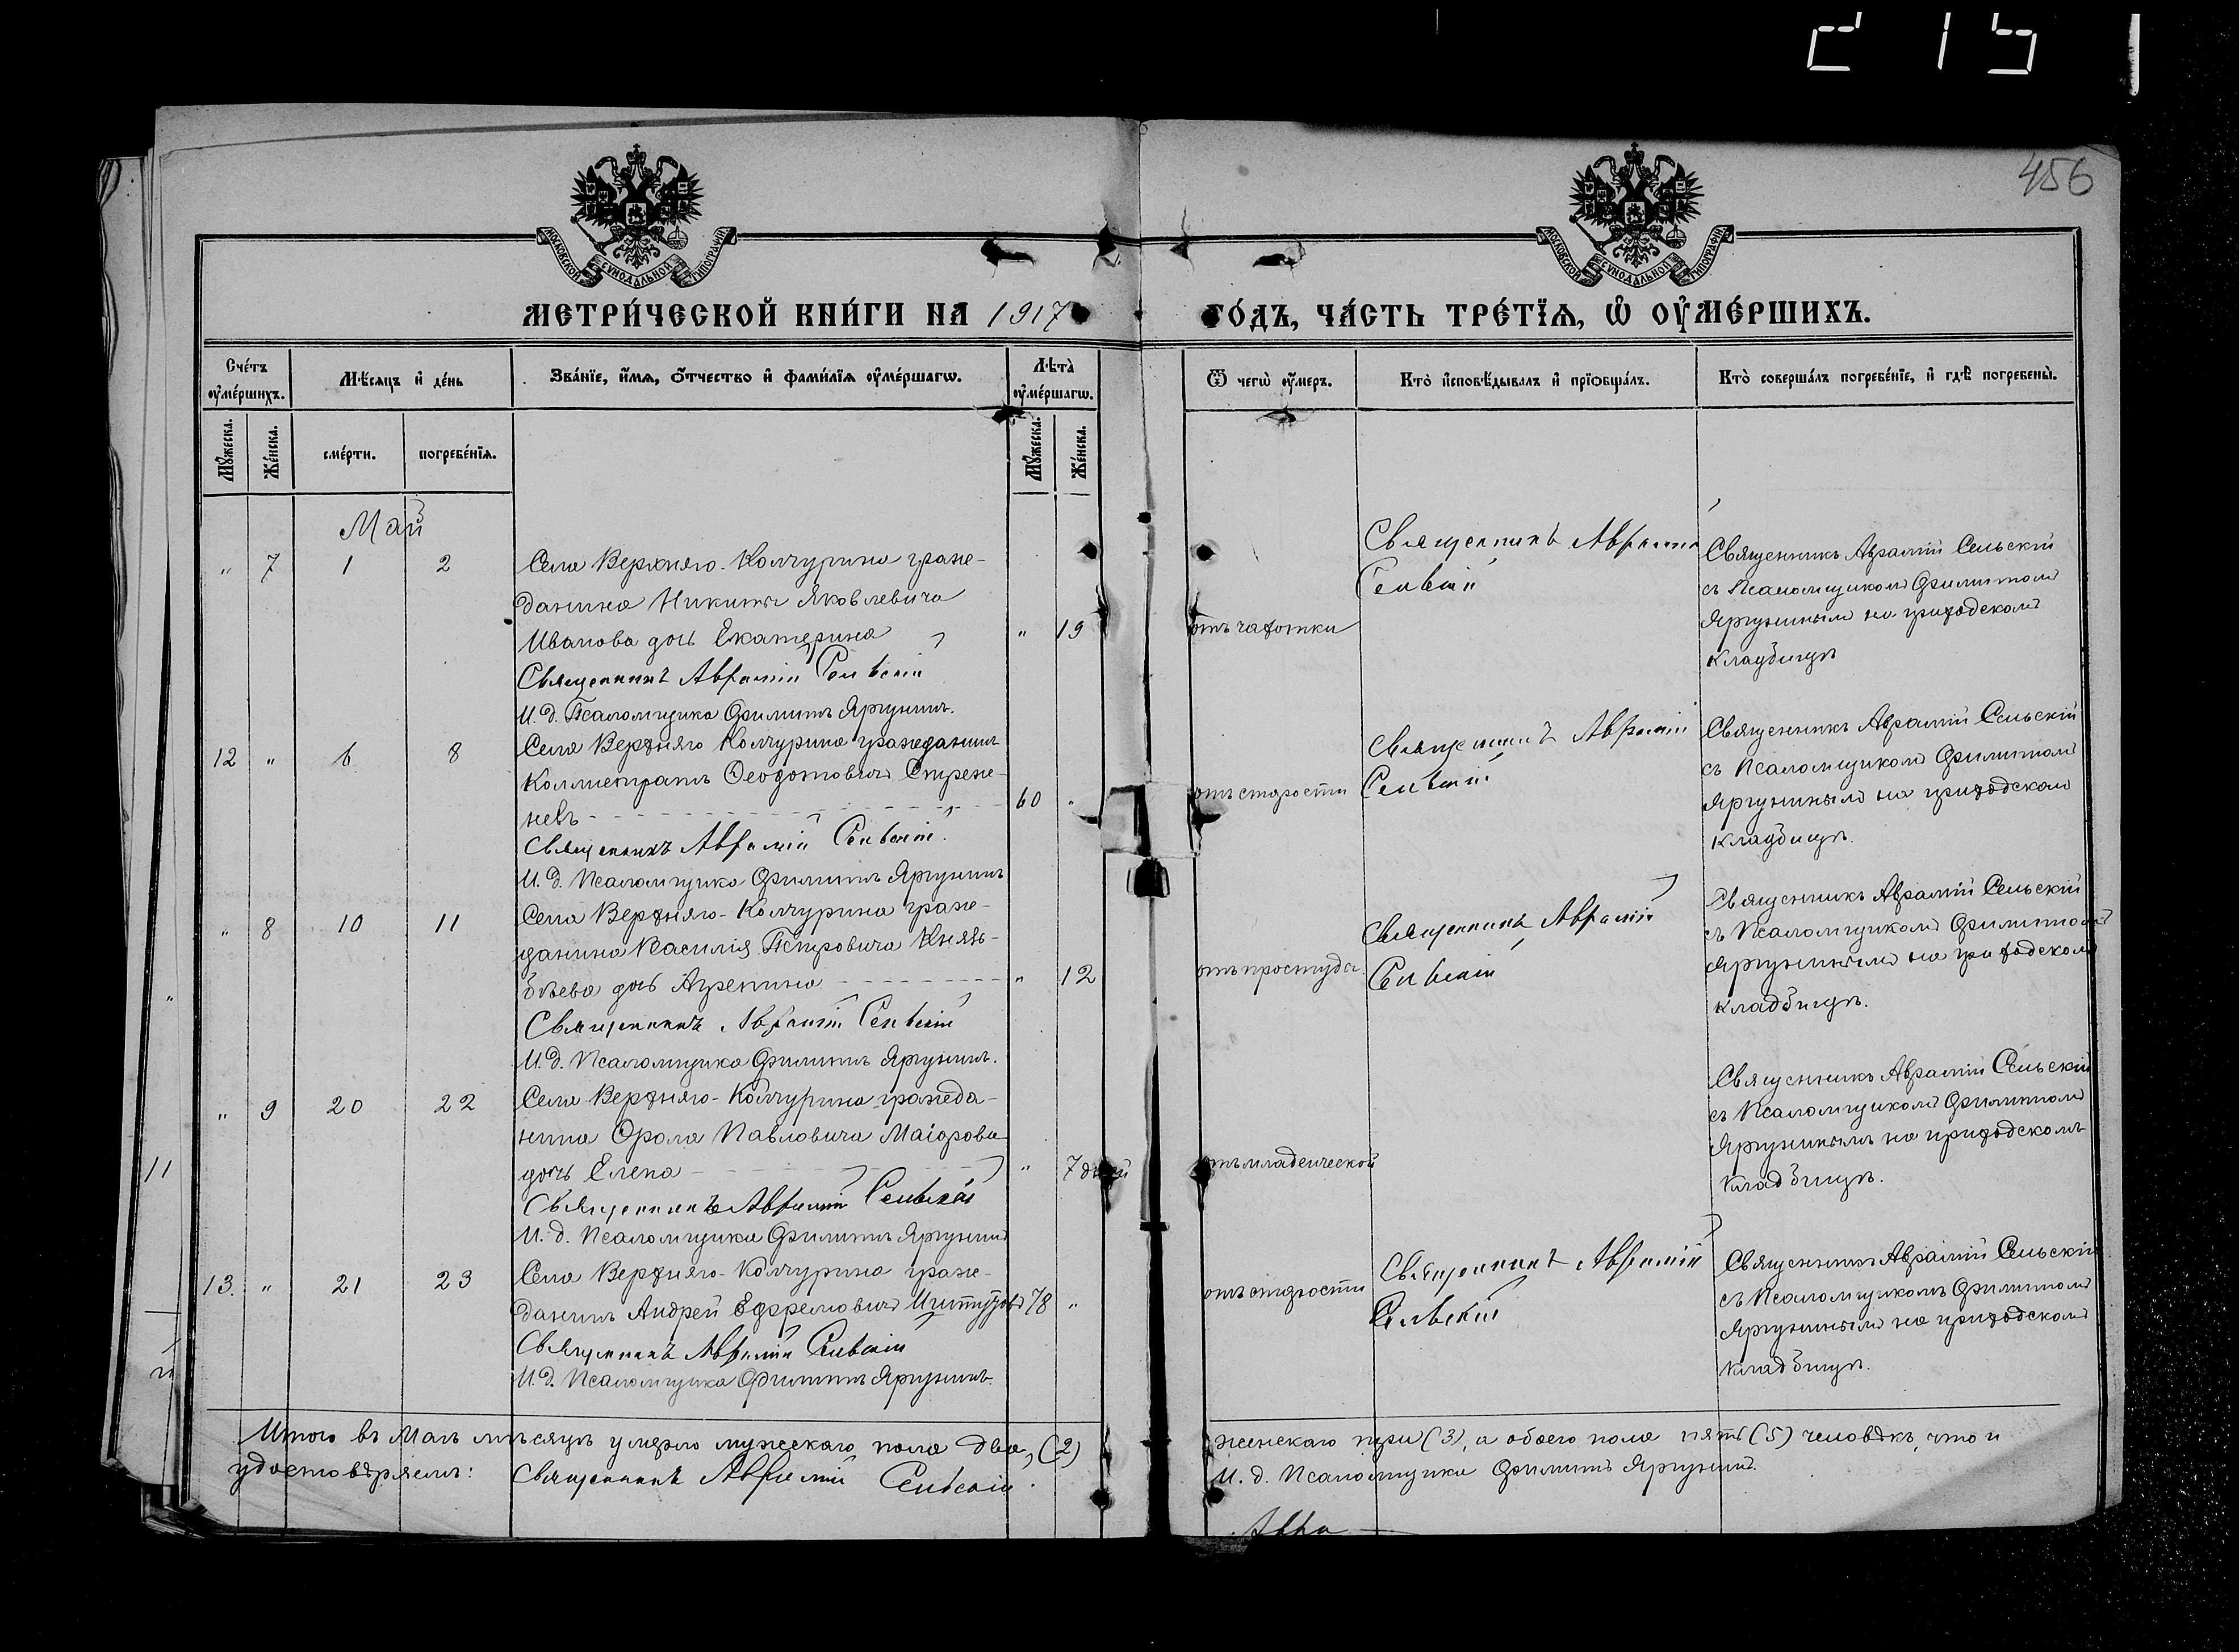 456
МОСКОВСКОЙ СУНОДАЛЬНОЙ ТИПОГРАФІИ
МОСКОВСКОЙ СУНОДАЛЬНОЙ ТИПОГРАФІИ
МЕТРИ́ЧЕСКОЙ КНИ́ГИ НА 1917
ГО́ДЪ, ЧА́СТЬ ТРЕ́ТЇѦ, Ѡ҆ ОУ҆МЕ́РШИХЪ.
Сче́тъ оу҆ме́ршихъ.
Мѣ́сяцъ и҆ де́нь
Зва́нїе, и҆́мя, ѻ҆́тчество и҆ фами́лїя оу҆ме́ршагѡ.
Лѣта̀ оу҆ме́ршагѡ.
Ѿ чегѡ̀ оу҆́меръ.
Кто̀ и҆сповѣ́дывалъ и҆ прїѡбща́лъ.
Кто̀ соверша́лъ погребе́нїе, и҆ гдѣ̀ погребены̀.
Мꙋ́жеска.
Же́нска.
сме́рти.
погребе́нїя.
Мꙋ́жеска.
Же́нска.
Май
" 7 1 2
Села Верхняго-Колчурина граж-
данина Никиты Яковлевича
Иванова дочь Екатерина " 19
Священникъ Аврамій Сельскій
И. д. Псаломщика Филиппъ Яргунинъ.
отъ чахотки
Священникъ Аврамій
Сельскій
Священникъ Аврамій Сельскій
съ Псаломщикомъ Филиппомъ
Яргунинымъ на приходскомъ
кладбищѣ
12 " 6 8
Села Верхняго Колчурина гражданинъ
Каллистратъ Ѳеодотовичъ Стреж-
невъ 60 "
Священникъ Аврамій Сельскій.
И. д. Псаломщика Филиппъ Яргунинъ
отъ старости
Священникъ Аврамій
Сельскій
Священникъ Аврамій Сельскій
съ Псаломщикомъ Филиппомъ
Яргунинымъ на приходскомъ
кладбищѣ.
" 8 10 11
Села Верхняго-Колчурина граж-
данина Василія Петровича Князь-
бѣева дочь Агрепина " 12
Священникъ Аврамій Сельскій
И. д. Псаломщика Филиппъ Яргунинъ.
отъ простуды.
Священникъ Аврамій
Сельскій
Священникъ Аврамій Сельскій
съ Псаломщикомъ Филиппомъ
Яргунинымъ на приходскомъ
кладбищѣ.
" 9 20 22
Села Верхняго-Колчурина гражда-
нина Фрола Павловича Маіорова
дочь Елена " 7 дней
Священникъ Аврамій Сельскій
И. д. Псаломщика Филиппъ Яргунинъ
отъ младенческой
Священникъ Аврамій Сельскій
съ Псаломщикомъ Филиппомъ
Яргунинымъ на приходскомъ
кладбищѣ.
13. " 21 23
Села Верхняго-Колчурина граж-
данинъ Андрей Ефремовичъ 78 "
Священникъ Аврамій Сельскій
И. д. Псаломщика Филиппъ Яргунинъ.
отъ старости
Священникъ Аврамій
Сельскій
Священникъ Аврамій Сельскій
съ Псаломщикомъ Филиппомъ
Яргунинымъ на приходскомъ
кладбищѣ.
Итого въ Маѣ мѣсяцѣ умерло мужскаго пола два, (2)
женскаго три (3), а обоего пола пять (5) человѣкъ, что и
удостовѣряемъ: Священникъ Аврамій Сельскій.
И. д. Псаломщика Филиппъ Яргунинъ.
Авра
11